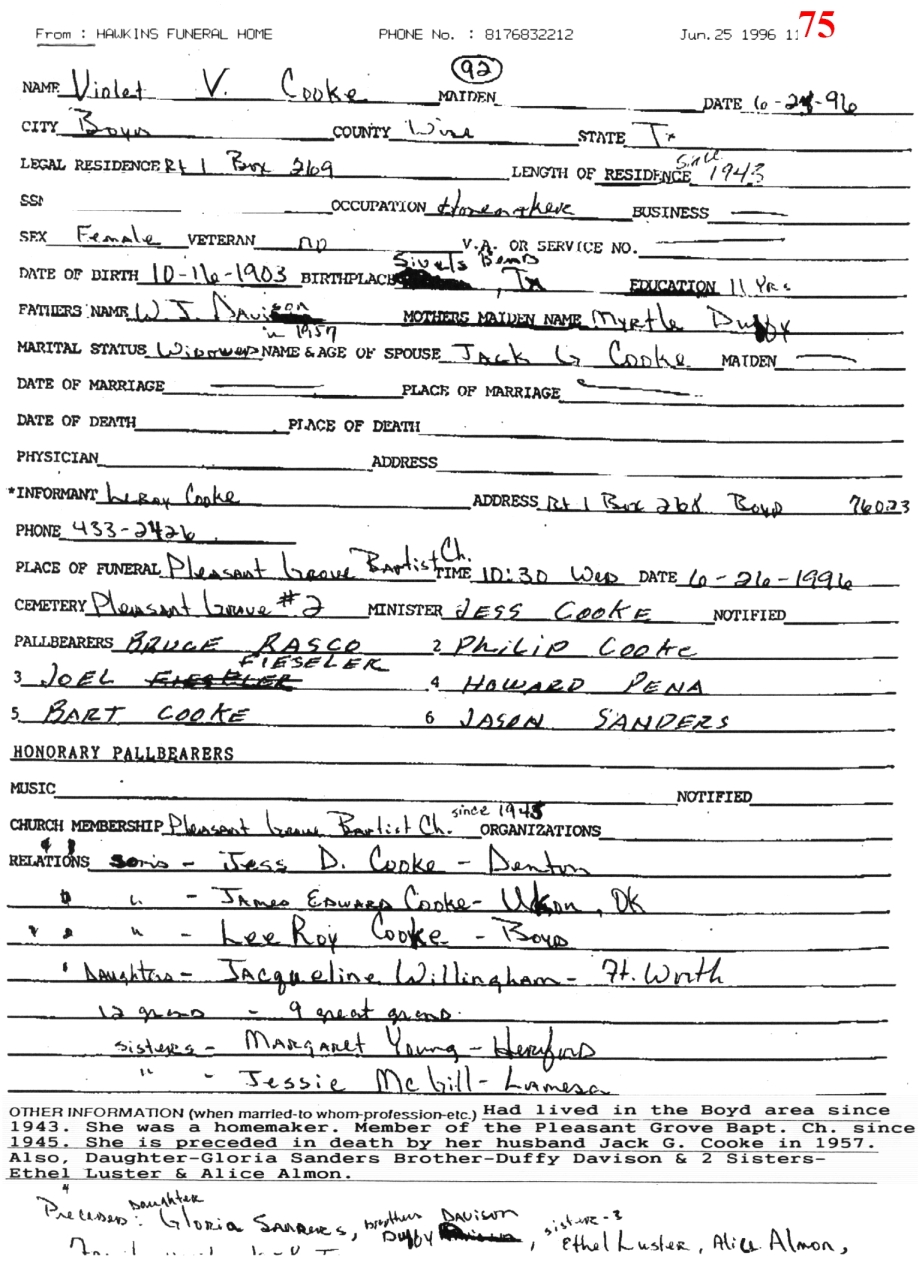 75
From : HAWKINS FUNERAL HOME PHONE No. : 8176832212 Jun.25 1996 11
92
NAME Violet V. Cooke MAIDEN DATE 6-24-96
CITY Boyd COUNTY Wise STATE Tx
LEGAL RESIDENCE Rt 1 Box 269 LENGTH OF RESIDENCE Since 1943
SSN OCCUPATION Homemaker BUSINESS
SEX Female VETERAN no V.A. OR SERVICE NO.
DATE OF BIRTH 10-16-1903 BIRTHPLACE Sivels Bend, Tx EDUCATION 11 Yrs
FATHERS NAME W.J. Davison MOTHERS MAIDEN NAME Myrtle Duffy
MARITAL STATUS Widowed in 1957 NAME & AGE OF SPOUSE Jack G Cooke MAIDEN
DATE OF MARRIAGE PLACE OF MARRIAGE
DATE OF DEATH PLACE OF DEATH
PHYSICIAN ADDRESS
*INFORMANT LeRoy Cooke ADDRESS Rt 1 Box 268 Boyd 76023
PHONE 433-2426
PLACE OF FUNERAL Pleasant Grove Baptist Ch. TIME 10:30 Wed DATE 6-26-1996
CEMETERY Pleasant Grove #2 MINISTER JESS COOKE NOTIFIED
PALLBEARERS BRUCE RASCO 2 PHILIP COOKE
3 JOEL FIESELER 4 HOWARD PENA
5 BART COOKE 6 JASON SANDERS
HONORARY PALLBEARERS
MUSIC NOTIFIED
CHURCH MEMBERSHIP Pleasant Grove Baptist Ch. since 1945 ORGANIZATIONS
RELATIONS sons - Jess D. Cooke - Denton
" - James Edward Cooke - Ukon, OK
" - Lee Roy Cooke - Boyd
Daughters - Jacqueline Willingham - Ft. Worth
12 grand - 9 great grand.
sisters - Margaret Young - Hereford
" - Jessie McGill - Lamesa
OTHER INFORMATION (when married-to whom-profession-etc.) Had lived in the Boyd area since
1943. She was a homemaker. Member of the Pleasant Grove Bapt. Ch. since
1945. She is preceded in death by her husband Jack G. Cooke in 1957.
Also, Daughter-Gloria Sanders Brother-Duffy Davison & 2 Sisters-
Ethel Luster & Alice Almon.
Preceded: Daughter Gloria Sanders, brothers Duffy Davison, sisters-3 Ethel Luster, Alice Almon,